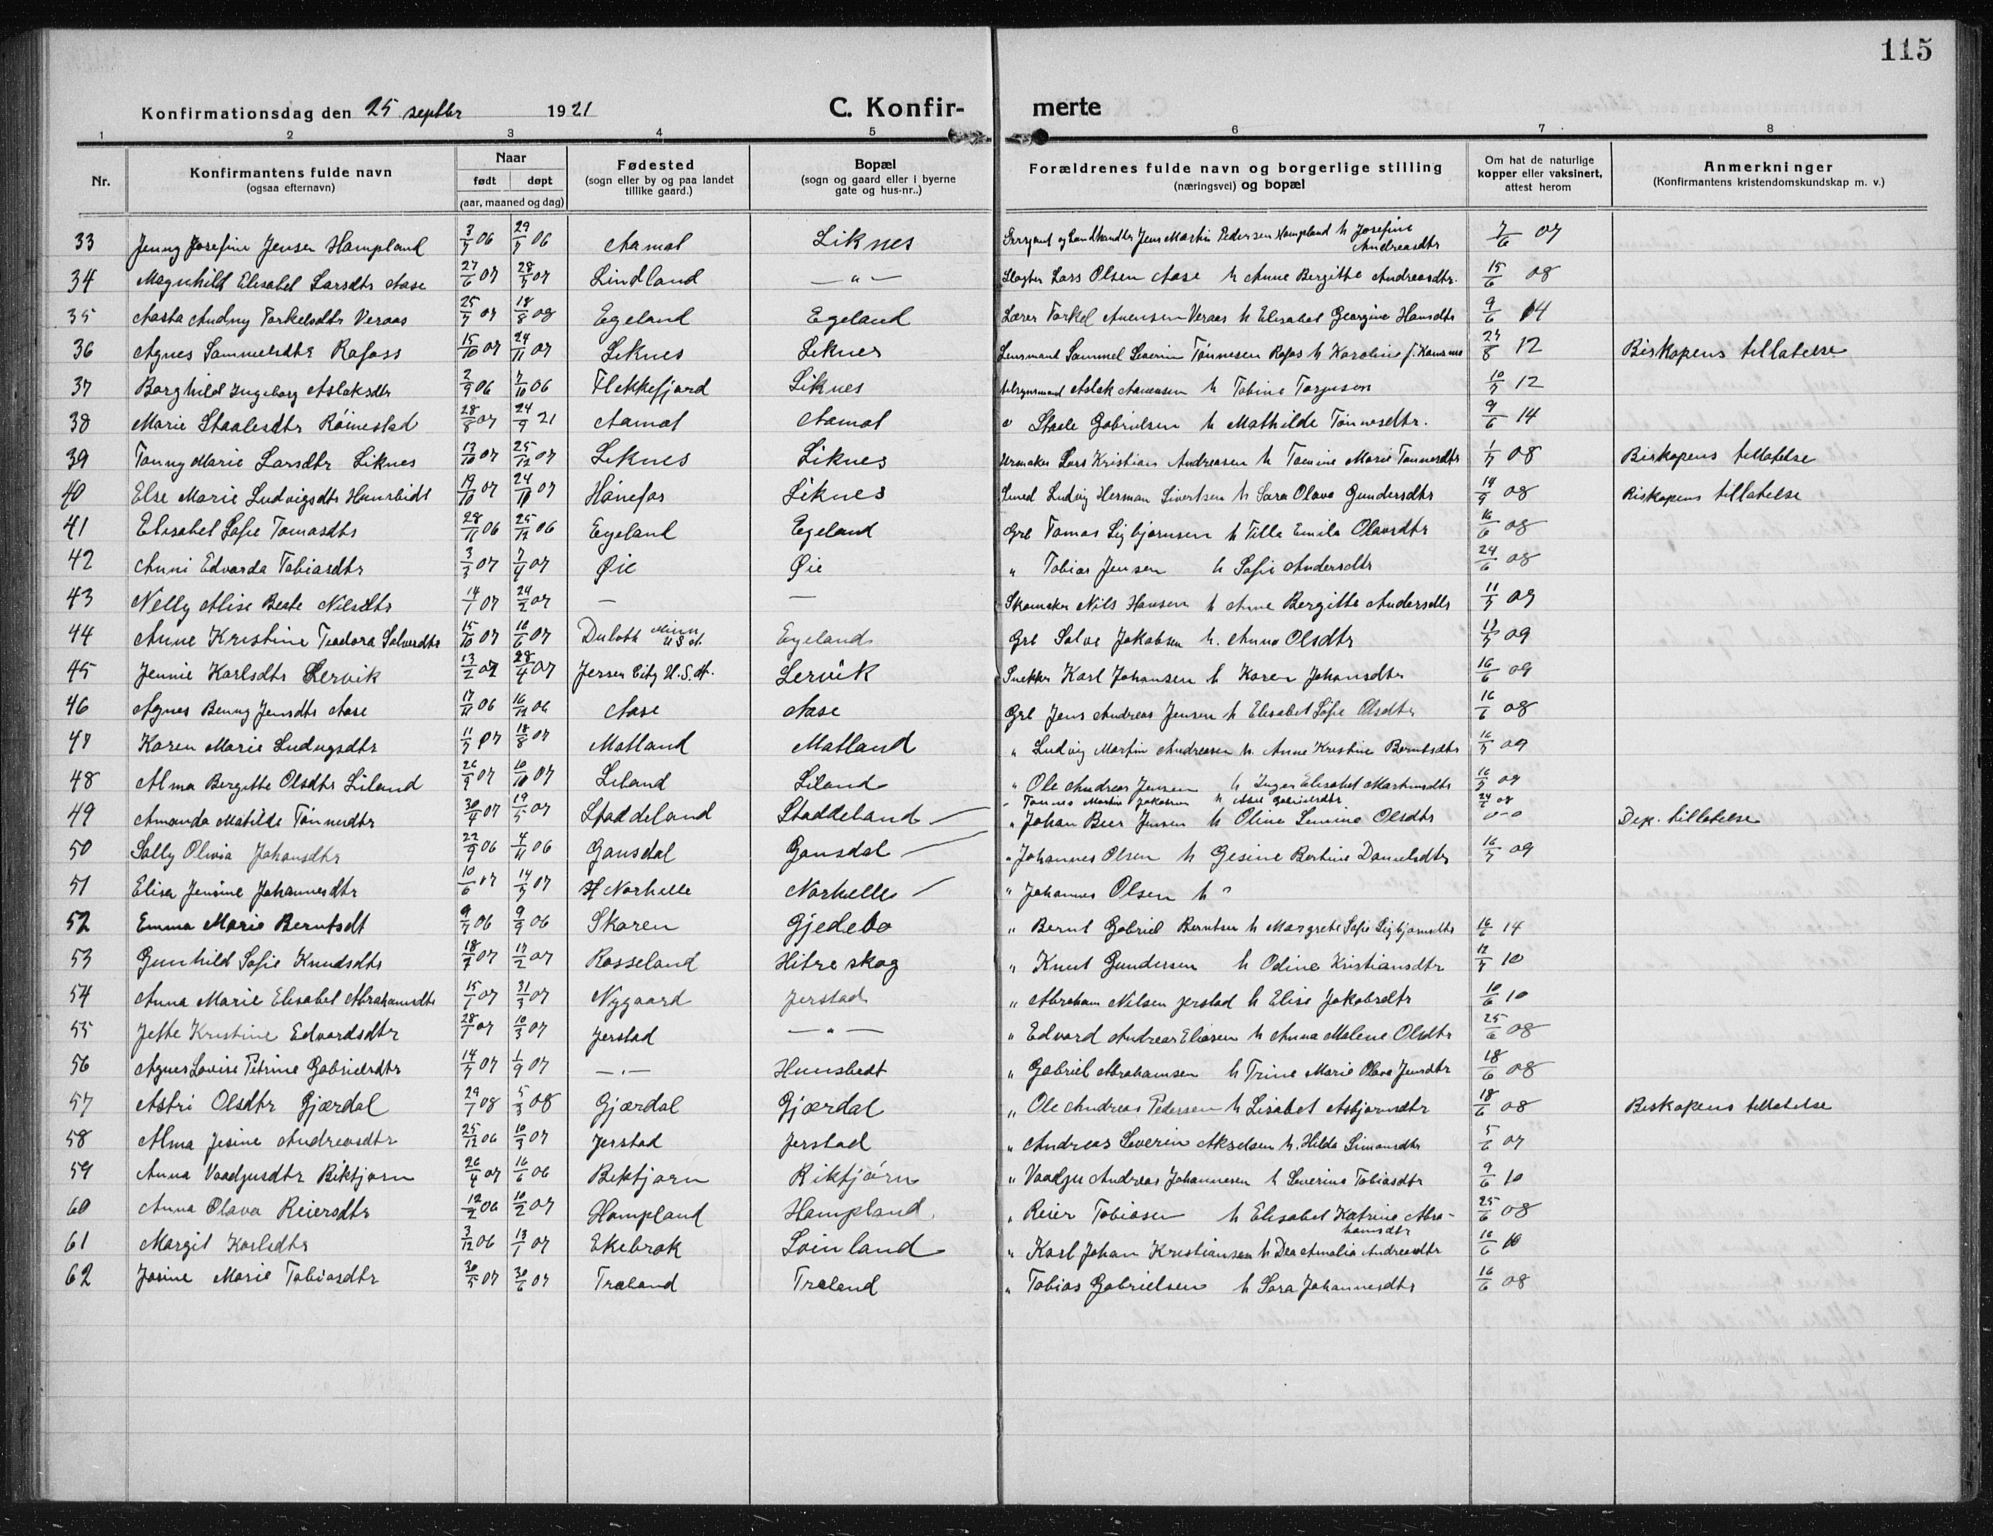 115
Konfirmationsdag den 25 septbr 1921 C. Konfir- merte
1 2 3 4 5 6 7 8
Nr. Konfirmantens fulde navn (ogsaa efternavn) Naar født døpt (aar, maaned og dag) Fødested (sogn eller by og paa landet tillike gaard.) Bopæl (sogn og gaard eller i byerne gate og hus-nr..) Forældrenes fulde navn og borgerlige stilling (næringsvei) og bopæl Om hat de naturlige kopper eller vaksinert, attest herom Anmerkninger (Konfirmantens kristendomskundskap m. v.)
33 Jenny Josefine Jensen Hampland 3/7 06 29/7 06 Aamot Liknes Sersjant og landhandler Jens Martin Pedersen Hampland h Josefine Andreasdtr 7/6 07
34 Magnhild Elisabet Larsdtr Aase 27/6 07 28/7 07 Lindland — " — Slagter Lars Olsen Aase h Anne Bergitte Andreasdtr. 15/6 08
35 Aasta Audny Torkelsdtr Veraas 25/7 07 18/8 08 Egeland Egeland Lærer Torkel Aanensen Veraas h Elisabet Georgine Hansdtr 9/6 14
36 Agnes Sammelsdtr Rafoss 15/10 07 24/11 07 Liknes Liknes Lensmand Sammel Severin Tønnesen Rafos h Karoline f. 27/8 12 Biskopens tillatelse
37 Borghild Ingeborg Aslaksdtr 2/9 06 7/10 06 Flekkefjord Liknes Aslak Aanensen h Tobine Torjusen 10/7 12
38 Marie Staalesdtr Røinestad 28/8 07 24/9 21 Aamot Aamot Staale Gabrielsen h Mathilde Tønnesdtr. 9/6 14
39 Tonny Marie Larsdtr Liknes 13/10 07 25/12 07 Liknes Liknes Urmaker Lars Kristian Andreasen h Tomine Marie Tønnesdtr 1/7 08 Biskopens tillatelse
40 Else Marie Ludvigsdtr 19/10 07 24/10 07 Hønefos Liknes Smed Ludvig Herman Sivertsen h Sara Olava Gundersdtr 14/9 08 Biskopens tillatelse
41 Elisabet Sofie Tomasdtr 28/11 06 25/12 06 Egeland Egeland Grb Tomas Sigbjørnsen h Tilla Emilie Olavsdtr 16/6 08
42 Anni Edvarda Tobiasdtr 3/3 07 7/4 07 Øie Øie " Tobias Jensen h Sofie Andersdtr 24/6 08
43 Nelly Alise Beate Nilsdtr 14/1 07 24/2 07 — — Skomaker Nils Hansen h Anne Bergitte Andersdtr 11/7 09
44 Anne Kristine Teodora Salvesdtr 15/10 07 10/6 07 Duloth Minn U S A. Egeland Grb Salve Jakobsen h. Anna Olsdtr 13/7 09
45 Jennie Karlsdtr Lervik 13/2 07 28/4 07 Jersey City U. S. A. Lervik Snekker Karl Johansen h Karen Johansdtr 16/6 09
46 Agnes Benny Jensdtr Aase 17/11 06 16/12 06 Aase Aase Grb Jens Andreas Jensen h Elisabet Sofie Olsdtr 16/6 08
47 Karen Marie Ludvigsdtr 11/7 07 18/8 07 Matland Matland " Ludvig Martin Andreasen h. Anne Kristine Berntsdtr 16/7 09
48 Alma Bergitte Olsdtr Liland 26/9 07 10/10 07 Liland Liland " Ole Andreas Jensen h Inger Elisabet Martinsdtr 16/7 09
Tønnes Martin Jakobsen h Gabrielsdtr 24/6 08
49 Amanda Matilde Tønnesdtr 30/4 07 19/5 07 Staddeland Staddeland — " Johan Beer Jensen h Oline Olsdtr 0-0 Dep. tillatelse
50 Sally Olivia Johansdtr 22/9 06 4/11 06 Gansdal Gansdal — " Johannes Olsen h Gesine Bertine Danielsdtr 16/7 09
51 Elisa Jensine Johannesdtr 10/6 07 14/7 07 Norhelle Norhelle — " Johannes Olsen h "
52 Emma Marie Berntsdt 9/7 06 9/9 06 Skoren Gjedebo " Bernt Gabriel Berntsen h Margrete Sofie Sigbjørnsdtr 16/6 14
53 Gunhild Sofie Knudsdtr 18/7 07 17/2 07 Rosseland Hitreskog " Knut Gundersen h Odine Kristiansdtr 12/7 10
54 Anna Marie Elisabet Abrahamsdtr 15/1 07 31/3 07 Nygaard Jerstad " Abraham Nilsen Jerstad h Elise Jakobsdtr 10/6 10
55 Jette Kristine Edvardsdtr 28/1 07 10/3 07 Jerstad — " — " Edvard Andreas Eliasen h Anna Malene Olsdtr 25/6 08
56 Agnes Lovise Petrine Gabrielsdtr 14/7 07 1/9 07 — . — Hunsbedt " Gabriel Abrahamsen h Trine Marie Olava Jensdtr 18/6 08
57 Astri Olsdtr Gjærdal 29/1 08 5/3 08 Gjærdal Gjærdal " Ole Andreas Pedersen h Lisabet Asbjørnsdtr 18/6 08 Biskopens tillatelse
58 Alma Jesine Andreasdtr 25/12 06 10/3 07 Jerstad Jerstad " Andreas Severin Akselsen h. Hilda Simonsdtr 5/6 07
59 Anna Vaadjusdtr Biktjørn 26/4 07 16/6 06 Biktjørn Biktjørn " Vaadju Andreas Johannesen h Severine Tobiasdtr 9/6 10
60 Anna Olava Reiersdtr 12/2 06 10/2 07 Hampland Hampland. " Reier Tobiasen h Elisabet Katrine Abra- hamsdtr 25/6 08
61 Margit Karlsdtr 3/12 06 13/1 07 Ekebrok Loinland " Karl Johan Kristiansen h Dea Amalia Andreasdtr 16/6 10
62 Josine Marie Tobiasdtr 30/5 07 30/6 07 Træland Træland " Tobias Gabrielsen h Sara Johannesdtr 16/6 08